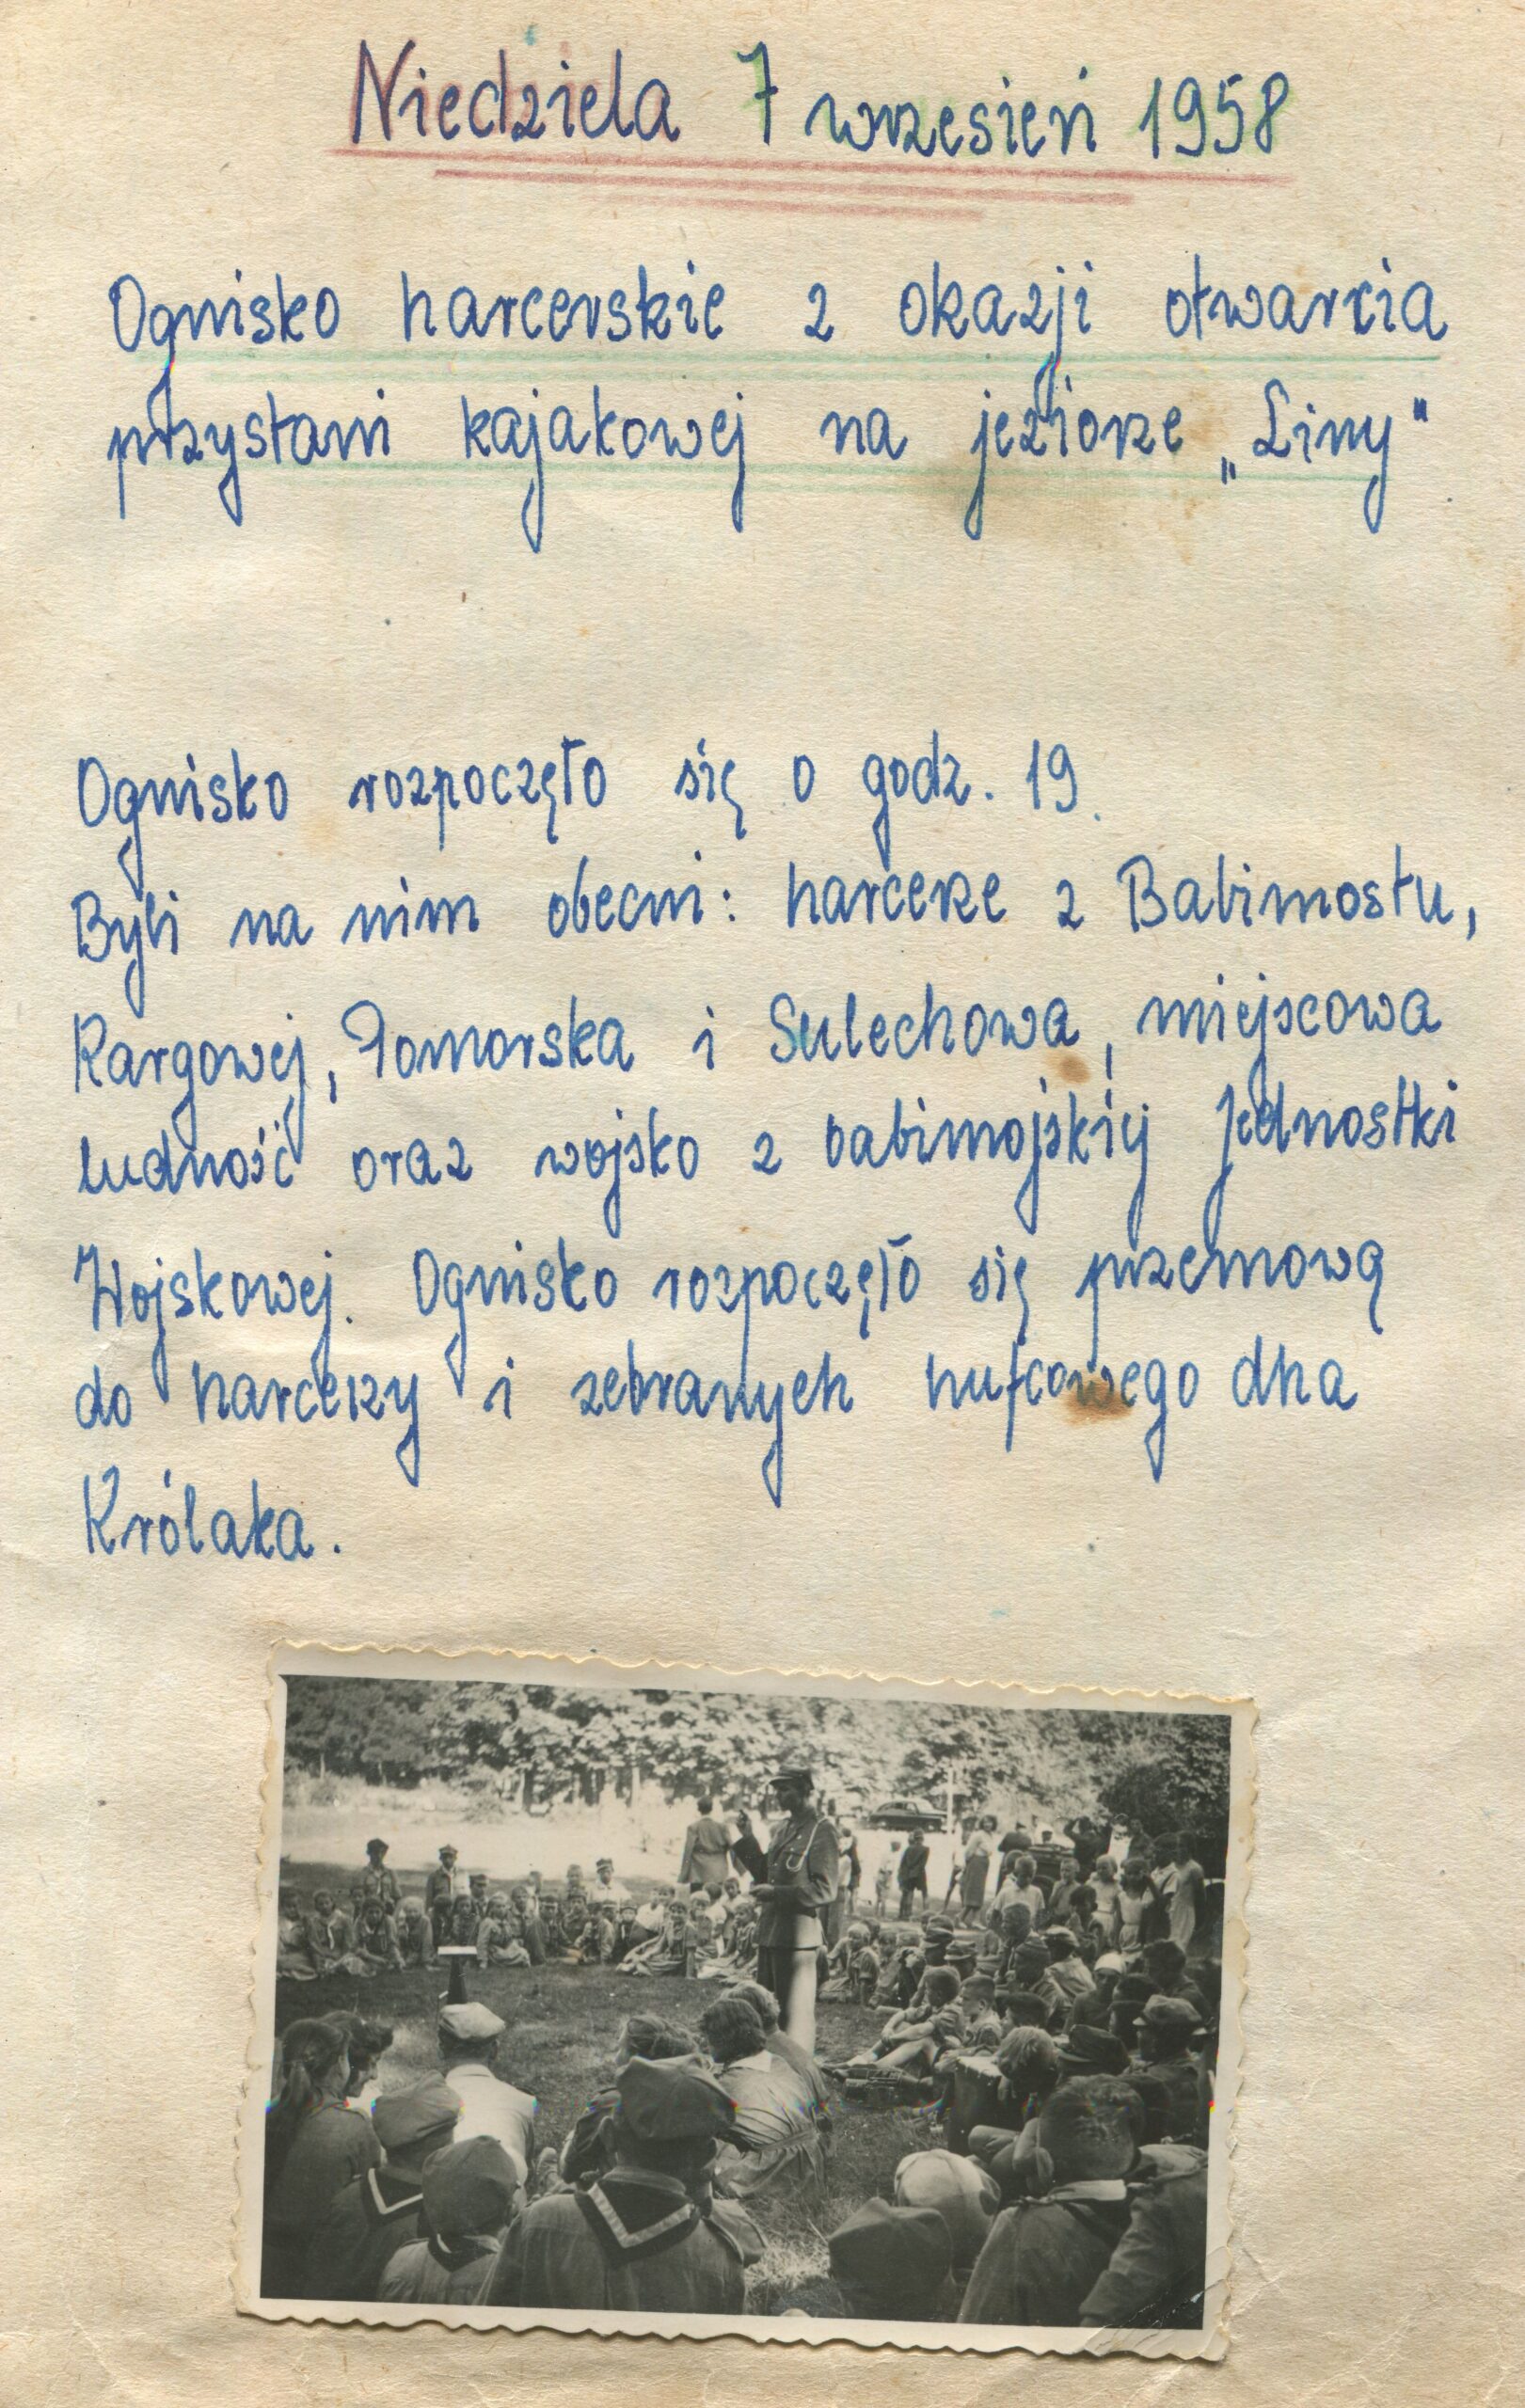 Niedziela 7 wrzesień 1958
Ognisko harcerskie z okazji otwarcia
przystani kajakowej na jeziorze „Liny"
Ognisko rozpoczęło się o godz. 19.
Byli na nim obecni: harcerze z Babimostu,
Kargowej, Pomorska i Sulechowa, miejscowa
ludność oraz wojsko z babimojskiej Jednostki
Wojskowej. Ognisko rozpoczęło się przemową
do harcerzy i zebranych hufcowego dha
Królaka.